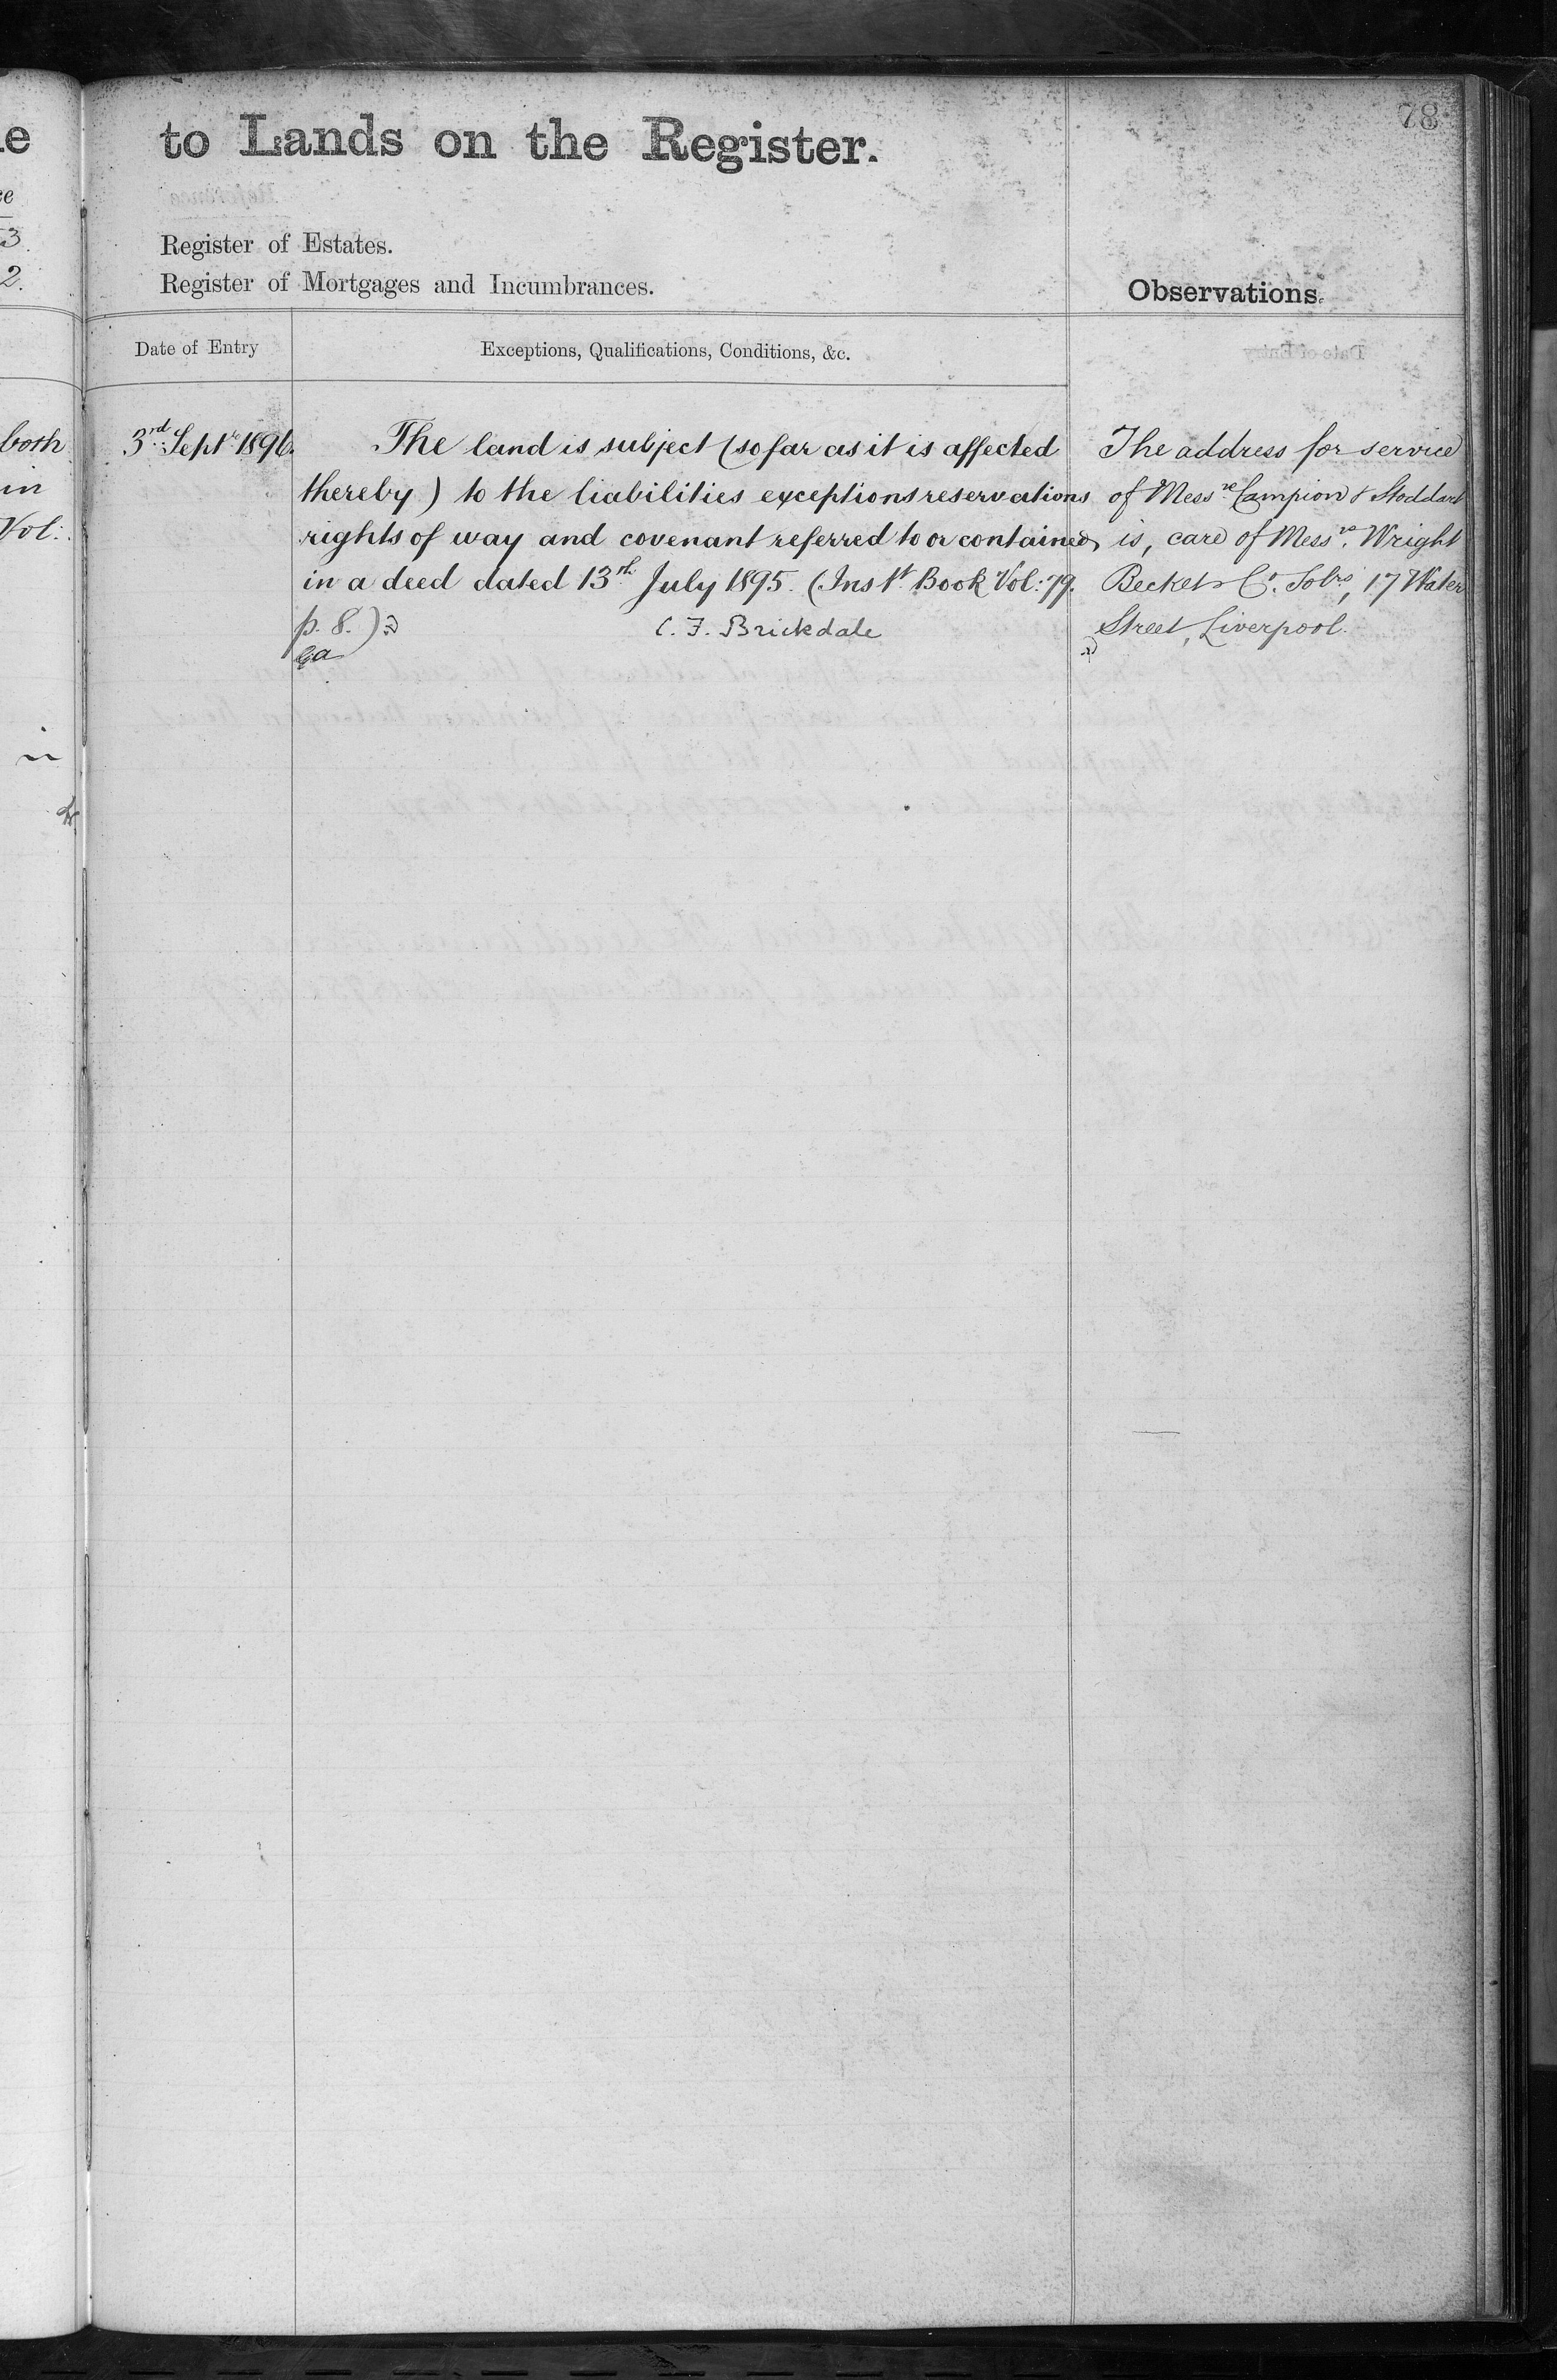 78
to Lands on the Register.
Register of Estates.
Register of Mortgages and Incumbrances.
Observations.
Date of Entry
Exceptions, Qualifications, Conditions, &c.
3rd Septr 1896.
The land is subject (so far as it is affected
thereby) to the liabilities exceptions reservations
rights of way and covenant referred to or contained
in a deed dated 13th July 1895. (Inst Book Vol: 79.
p. 8.)
C. F. Brickdale
The address for service
of Messrs Campion & Stoddart
is, care of Messrs. Wright
Becket & Co. Solrs, 17 Water
Street, Liverpool.
both
in
Vol: